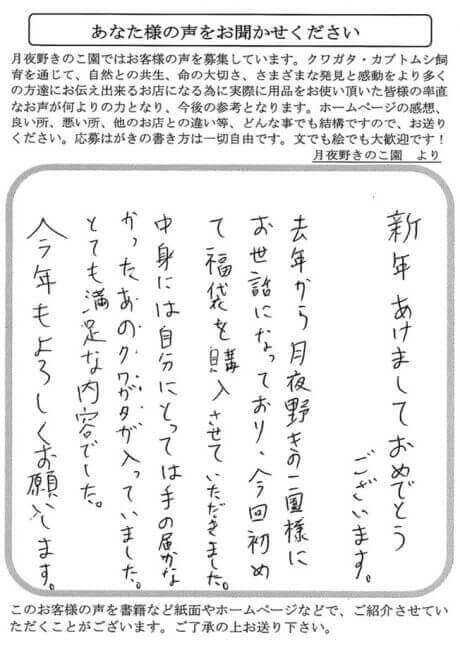 あなた様の声をお聞かせください
月夜野きのこ園ではお客様の声を募集しています。クワガタ・カブトムシ飼
育を通じて、自然との共生、命の大切さ、さまざまな発見と感動をより多く
の方達にお伝え出来るお店になる為に実際に用品をお使い頂いた皆様の率直
なお声が何よりの力となり、今後の参考となります。ホームページの感想、
良い所、悪い所、他のお店との違い等、どんな事でも結構ですので、お送り
ください。応募はがきの書き方は一切自由です。文でも絵でも大歓迎です！
月夜野きのこ園　より
新年あけましておめでとう
ございます。
去年から月夜野きのこ園様に
お世話になっており、今回初め
て福袋を購入させていただきました。
中身には自分にとっては手の届かな
かったあのクワガタが入っていました。
とても満足な内容でした。
今年もよろしくお願いします。
このお客様の声を書籍など紙面やホームページなどで、ご紹介させてい
ただくことがございます。ご了承の上お送り下さい。